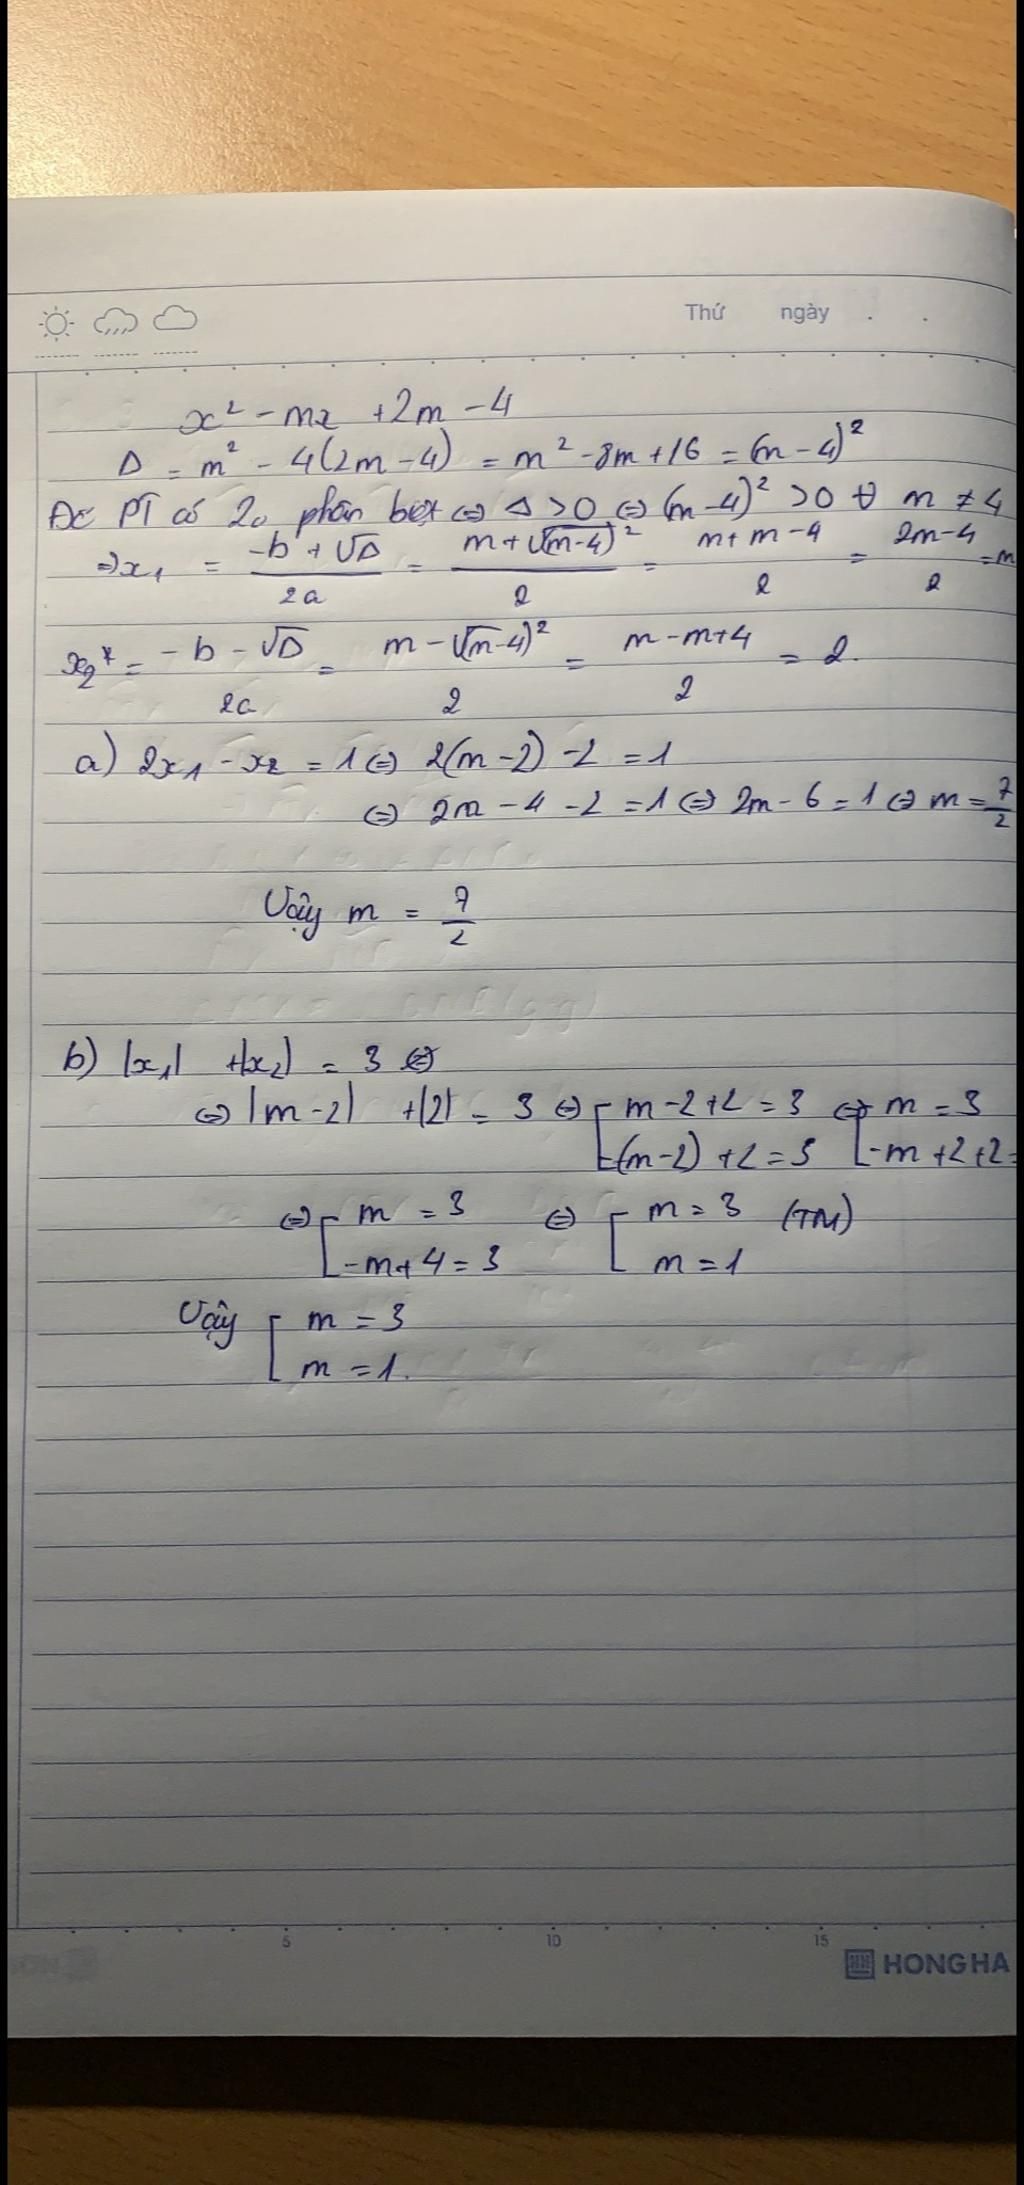 Thứ ngày . .
x² - mx + 2m - 4
Δ = m² - 4(2m - 4) = m² - 8m + 16 = (m - 4)²
Để PT có 2 n₀ phân biệt ⇔ Δ > 0 ⇔ (m - 4)² > 0 ∀ m ≠ 4
⇒ x₁ = (-b + √Δ)/2a = (m + √(m - 4)²)/2 = (m + m - 4)/2 = (2m - 4)/2 = m
x₂ = (-b - √Δ)/2a = (m - √(m - 4)²)/2 = (m - m + 4)/2 = 2.
a) 2x₁ - x₂ = 1 ⇔ 2(m - 2) - 2 = 1
⇔ 2m - 4 - 2 = 1 ⇔ 2m - 6 = 1 ⇔ m = 7/2
Vậy m = 7/2
b) |x₁| + |x₂| = 3 ⇔
⇔ |m - 2| + |2| = 3 ⇔ [ m - 2 + 2 = 3 ⇔ [ m = 3
-(m - 2) + 2 = 3 -m + 2 + 2 =
⇔ [ m = 3 ⇔ [ m = 3 (TM)
-m + 4 = 3 m = 1
Vậy [ m = 3
m = 1.
5 10 15
HONG HA